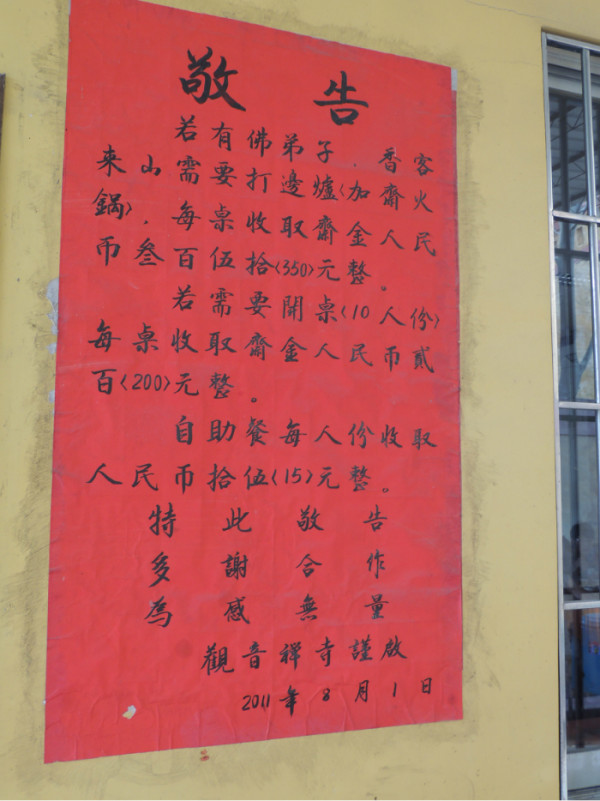 敬告
若有佛弟子.香客
来山需要打邊爐<加齋火
鍋>.每桌收取齋金人民
币叁百伍拾<350>元整。
若需要開桌<10人份>
每桌收取齋金人民币貳
百<200>元整。
自助餐每人份收取
人民币拾伍<15>元整。
特此敬告
多謝合作
為感無量
觀音禪寺謹啟
2011年8月1日